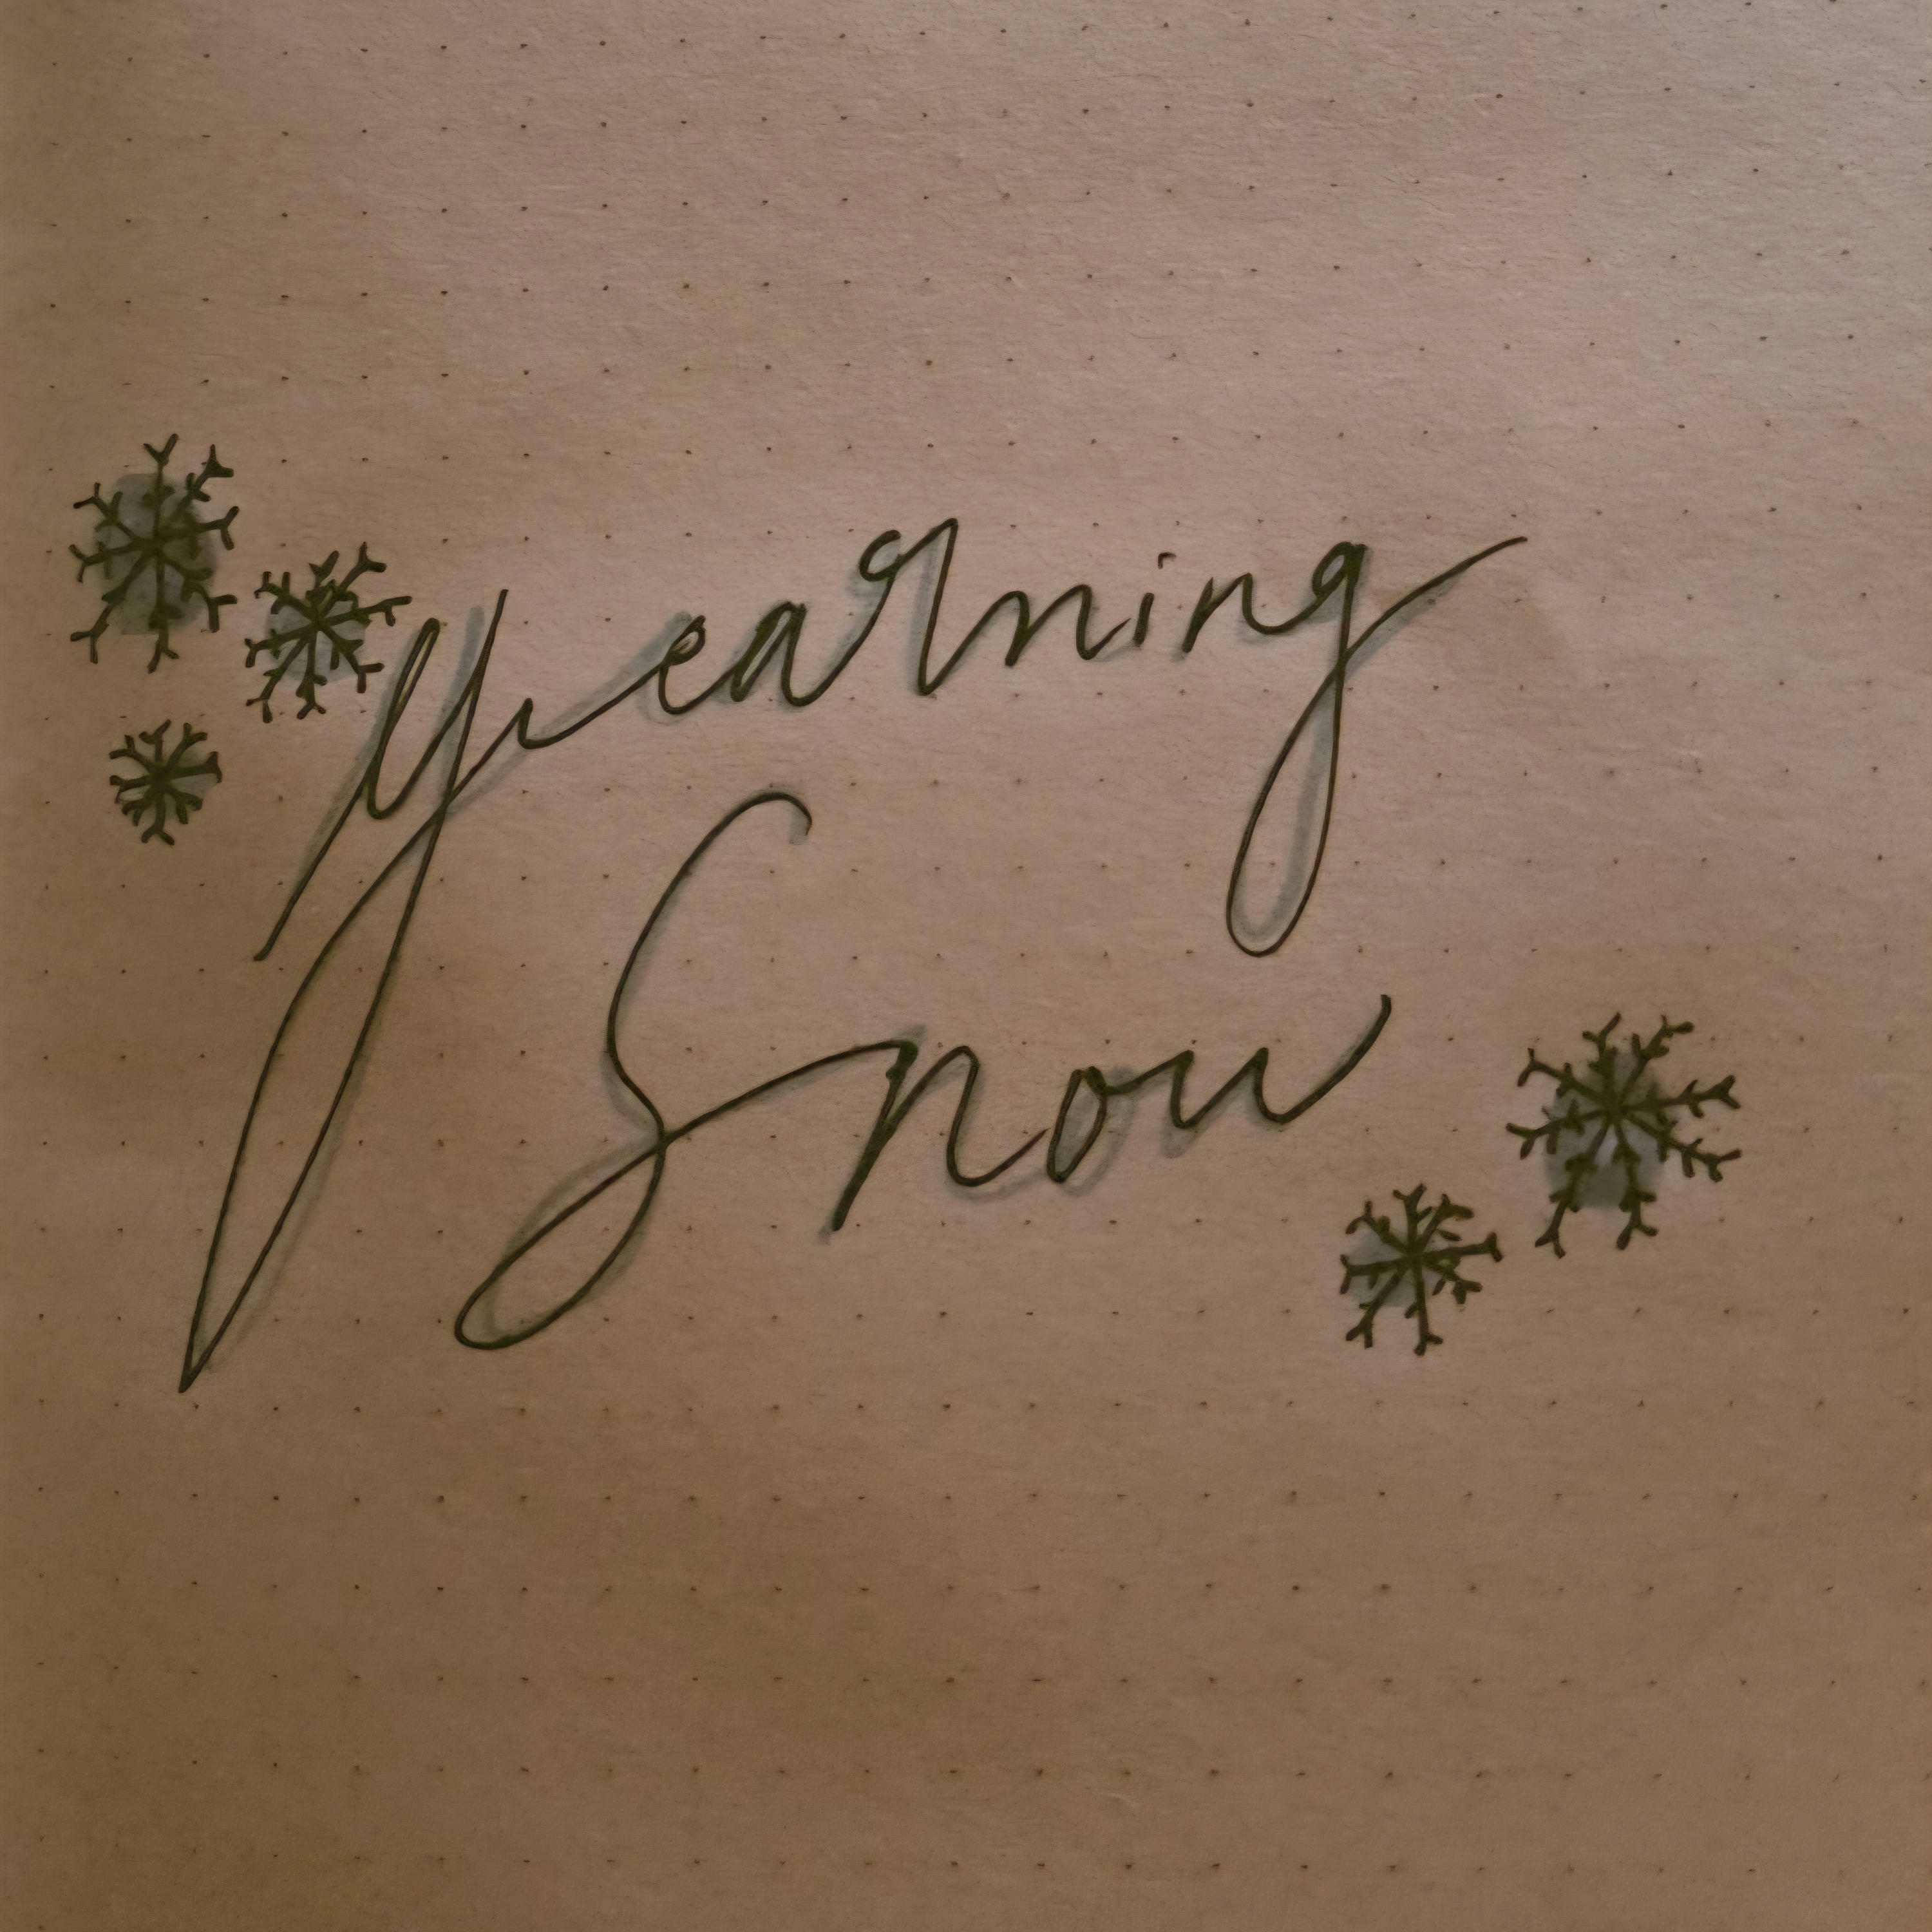 Yearning
Snow